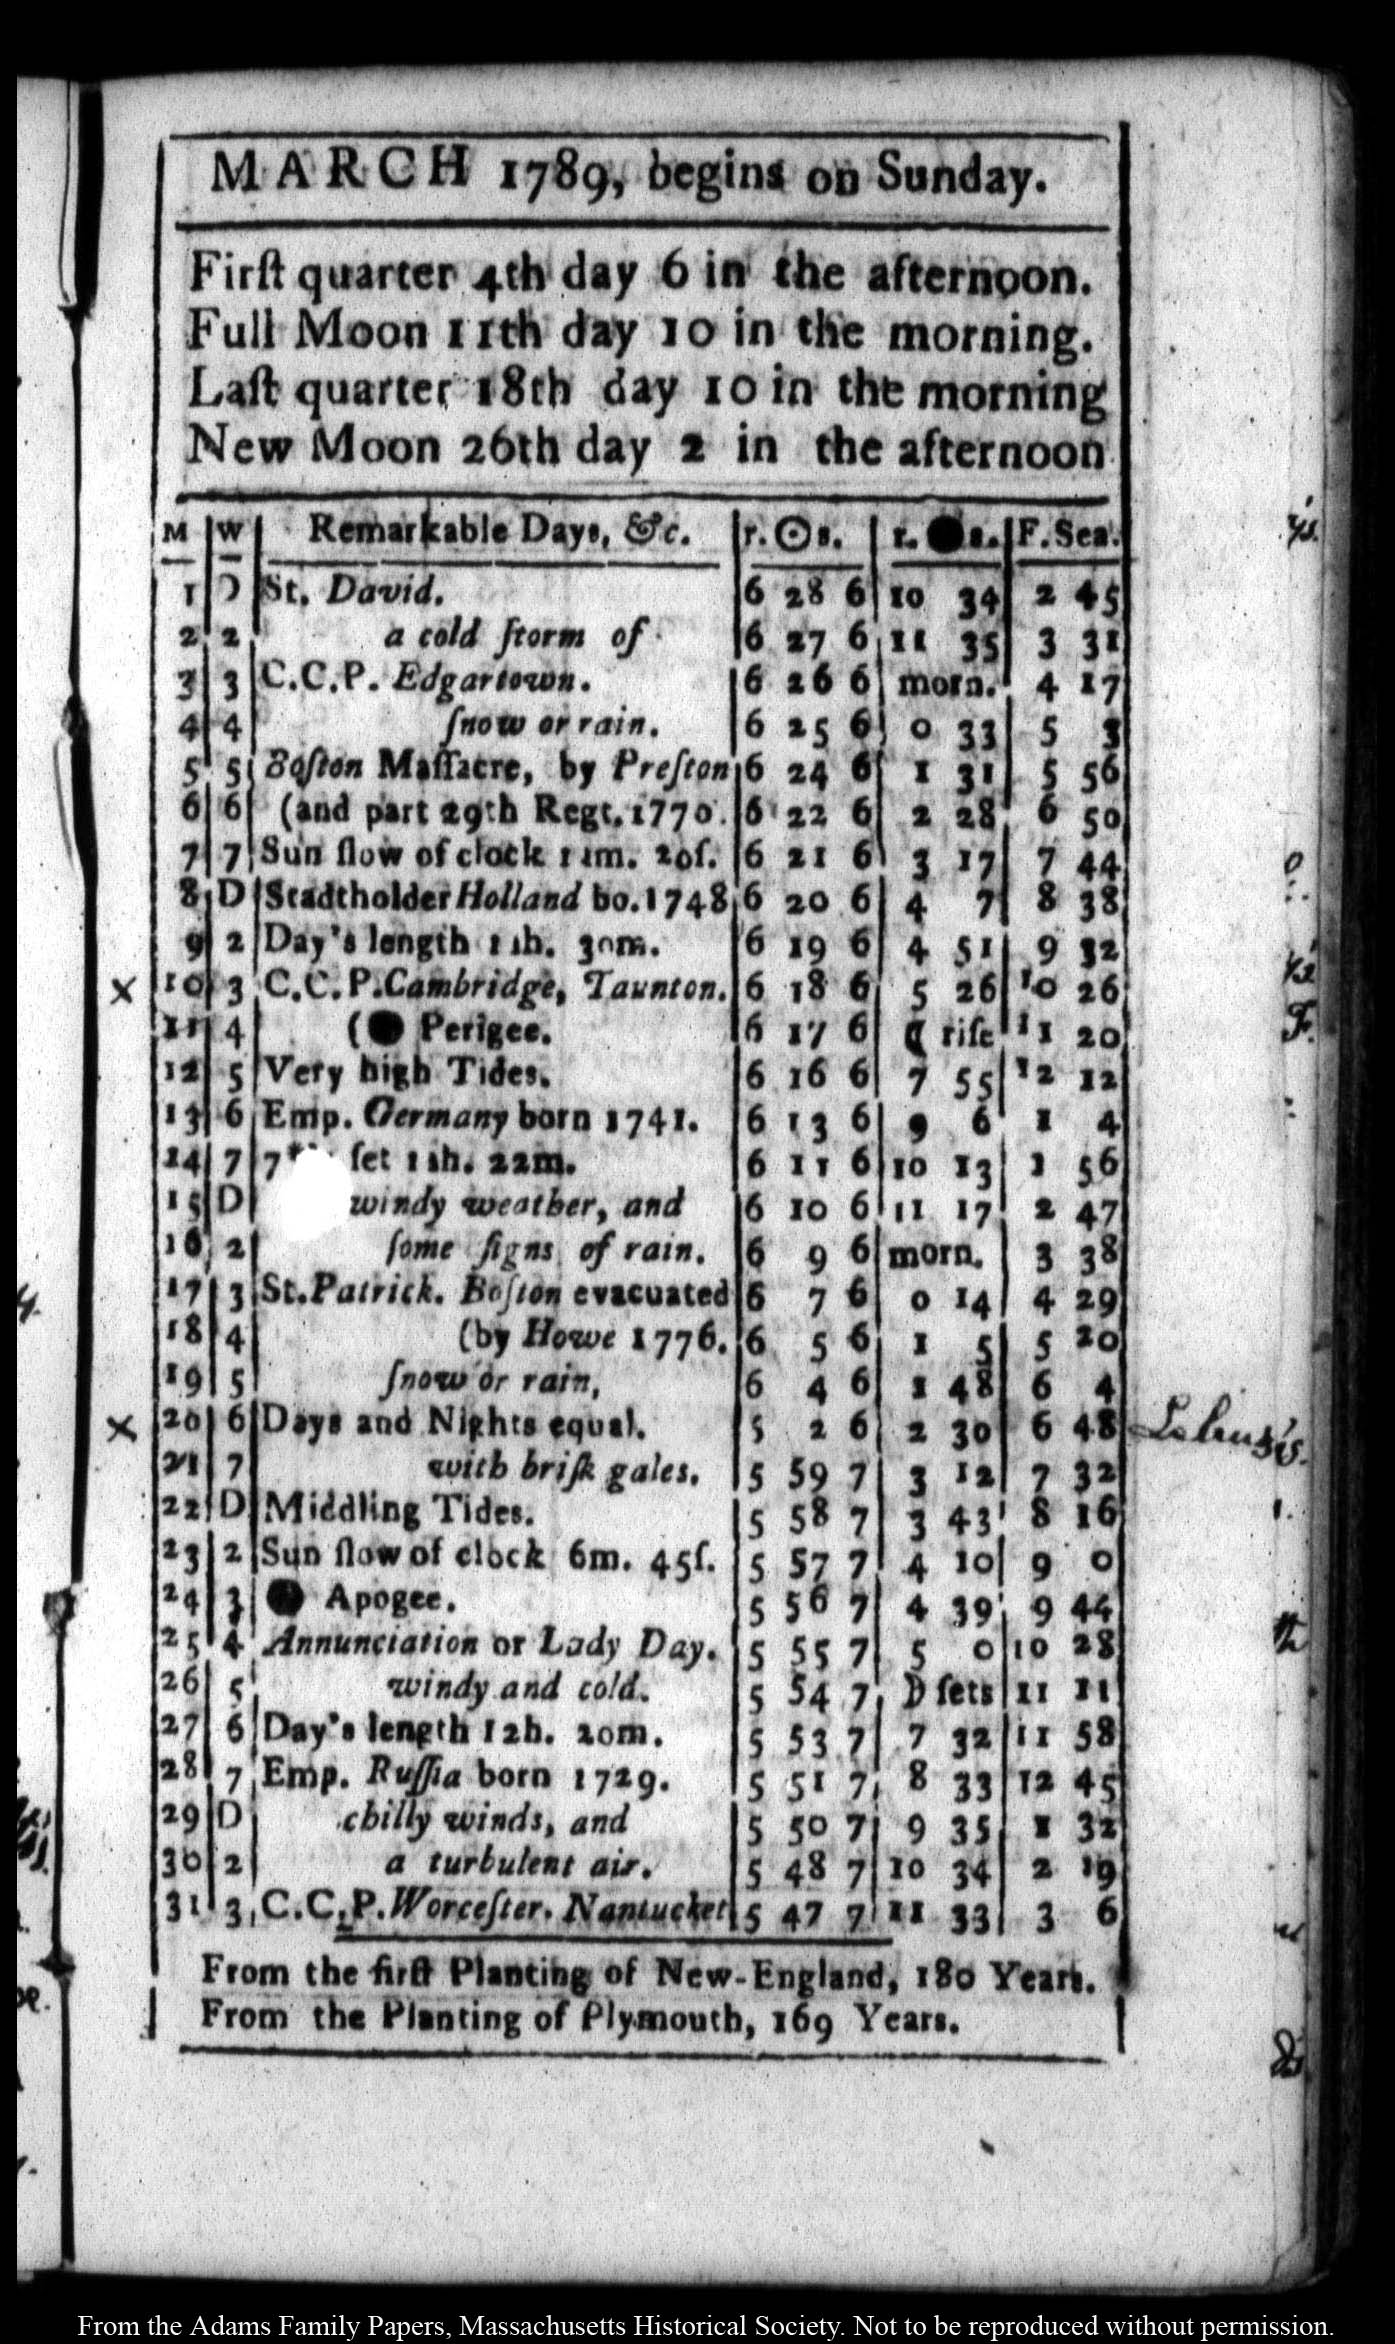 MARCH 1789, begins on Sunday.
Firſt quarter 4th day 6 in the afternoon.
Full Moon 11th day 10 in the morning.
Laſt quarter 18th day 10 in the morning
New Moon 26th day 2 in the afternoon
M W Remarkable Days, &c. r. ☉ s. r. ● s. F. Sea.
1 D St. David. 6 28 6 10 34 2 45
2 2 a cold ſtorm of 6 27 6 11 35 3 31
3 3 C.C.P. Edgartown. 6 26 6 morn. 4 17
4 4 ſnow or rain. 6 25 6 0 33 5 3
5 5 Boſton Maſſacre, by Preſton 6 24 6 1 31 5 56
6 6 (and part 29th Regt. 1770. 6 22 6 2 28 6 50
7 7 Sun ſlow of clock 11m. 20ſ. 6 21 6 3 17 7 44
8 D Stadtholder Holland bo. 1748 6 20 6 4 7 8 38
9 2 Day's length 11h. 30m. 6 19 6 4 51 9 32
x 10 3 C.C.P. Cambridge, Taunton. 6 18 6 5 26 10 26
11 4 (● Perigee. 6 17 6 ☾ riſe 11 20
12 5 Very high Tides. 6 16 6 7 55 12 12
13 6 Emp. Germany born 1741. 6 13 6 9 6 1 4
14 7 7 ſet 11h. 22m. 6 11 6 10 13 1 56
15 D windy weather, and 6 10 6 11 17 2 47
16 2 ſome ſigns of rain. 6 9 6 morn. 3 38
17 3 St. Patrick. Boſton evacuated 6 7 6 0 14 4 29
18 4 (by Howe 1776. 6 5 6 1 5 5 20
19 5 ſnow or rain, 6 4 6 1 48 6 4
x 20 6 Days and Nights equal. 5 2 6 2 30 6 48
21 7 with briſk gales. 5 59 7 3 12 7 32
22 D Middling Tides. 5 58 7 3 43 8 16
23 2 Sun ſlow of clock 6m. 45ſ. 5 57 7 4 10 9 0
24 3 ● Apogee. 5 56 7 4 39 9 44
25 4 Annunciation or Lady Day. 5 55 7 5 0 10 28
26 5 windy and cold. 5 54 7 ☽ ſets 11 11
27 6 Day's length 12h. 20m. 5 53 7 7 32 11 58
28 7 Emp. Ruſſia born 1729. 5 51 7 8 33 12 45
29 D chilly winds, and 5 50 7 9 35 1 32
30 2 a turbulent air. 5 48 7 10 34 2 19
31 3 C.C.P. Worceſter. Nantucket 5 47 7 11 33 3 6
From the firſt Planting of New-England, 180 Years.
From the Planting of Plymouth, 169 Years.
From the Adams Family Papers, Massachusetts Historical Society. Not to be reproduced without permission.